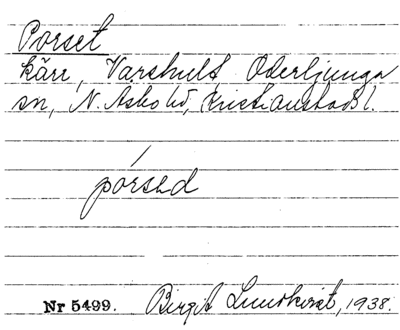 Porset
kärr, Varshult Oderljunga
sn, N. Asbo hd, Kristianstads l.
pórsed
Nr 5499. Birgit Lundkvist, 1938.